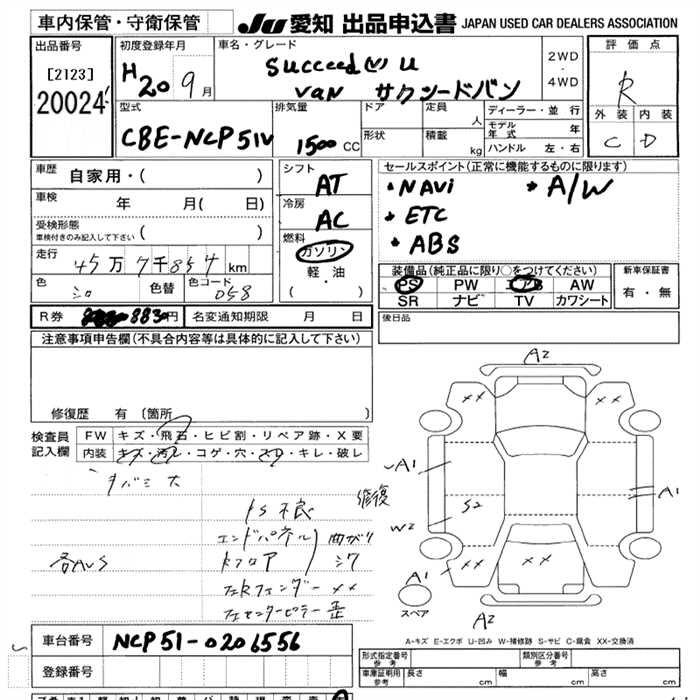 車内保管・守衛保管
JU 愛知 出品申込書 JAPAN USED CAR DEALERS ASSOCIATION
出品番号
[2123]
20024
初度登録年月
H20 9月
車名・グレード
succeed U
van サクシードバン
2WD
・
4WD
評価点
R
外装 内装
C D
型式
CBE-NCP51V
排気量
1500 CC
ドア
形状
定員 人
積載 kg
ディーラー・並行
モデル年式 年
ハンドル 左・右
車歴
自家用・( )
車検 年 月( 日)
受検形態
車検付きのみ記入して下さい ( )
走行
45万7千854km
色
シロ
色替
色コード
058
シフト
AT
冷房
AC
燃料
ガソリン
軽・油
( ・ )
セールスポイント(正常に機能するものに限ります)
・NAVi ・A/W
・ETC
・ABS
装備品(純正品に限り○をつけてください)
PS PW エアB AW
SR ナビ TV カワシート
新車保証書
有・無
R券 8830円
名変通知期限 月 日
後日品
注意事項申告欄(不具合内容等は具体的に記入して下さい)
修復歴 有 〔箇所
検査員
記入欄
FW キズ・飛石・ヒビ割・リペア跡・X要
内装 キズ・汚レ・コゲ・穴・スレ・キレ・破レ
大
不良
修復
エンドパネル 曲がり
各AUS
Rフロア
フェンダー XX
センターピラー 歪
A2
XX XX
A1
A1
S2
W2
A1
XX XX
スペア
A2
A-キズ E-エクボ U-凹み W-補修跡 S-サビ C-腐食 XX-交換済
車台番号 NCP51-0206556
登録番号
形式指定番号
参考
類別区分番号
参考
車庫証明用
参考
長さ cm 幅 cm 高さ cm